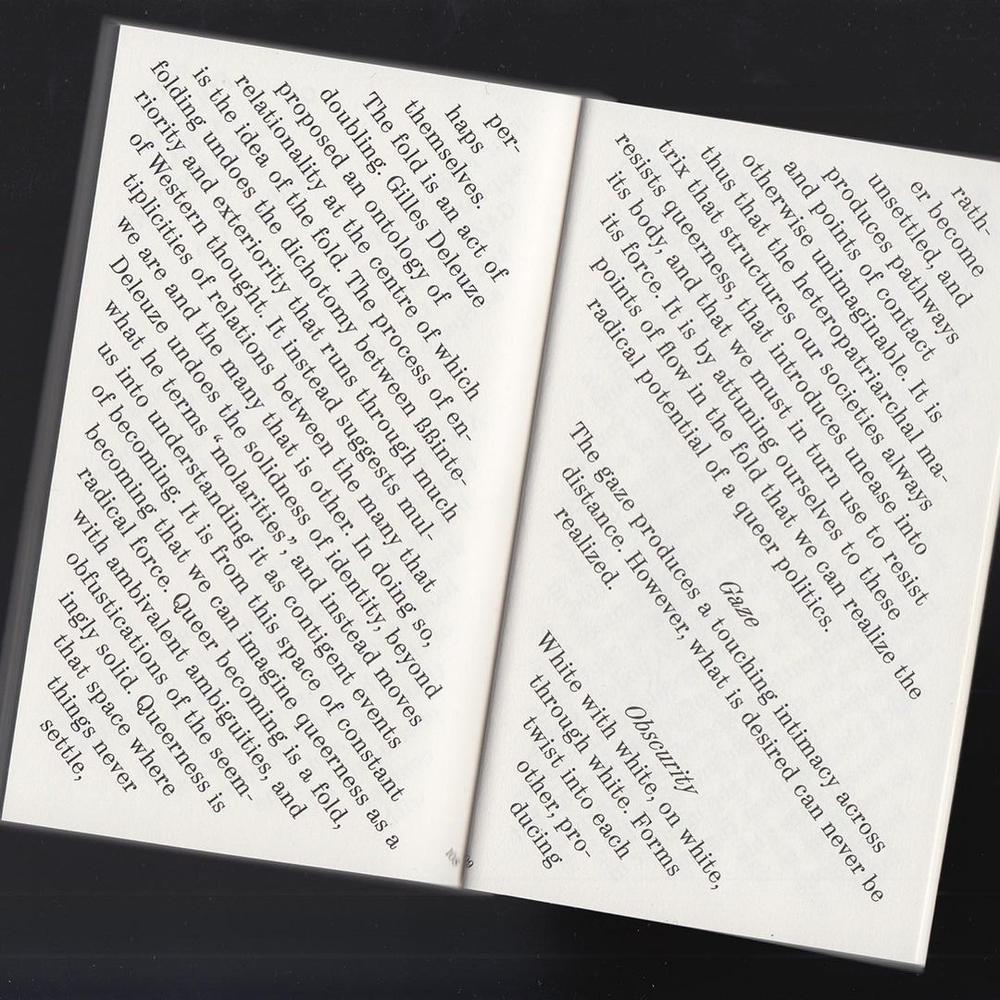 per-
haps
themselves.
The fold is an act of
doubling. Gilles Deleuze
proposed an ontology of
relationality at the centre of which
is the idea of the fold. The process of en-
folding undoes the dichotomy between ßßinte-
riority and exteriority that runs through much
of Western thought. It instead suggests mul-
tiplicities of relations between the many that
we are and the many that is other. In doing so,
Deleuze undoes the solidness of identity, beyond
what he terms “molarities”, and instead moves
us into understanding it as contigent events
of becoming. It is from this space of constant
becoming that we can imagine queerness as a
radical force. Queer becoming is a fold,
with ambivalent ambiguities, and
obfustications of the seem-
ingly solid. Queerness is
that space where
things never
settle,
rath-
er become
unsettled, and
produces pathways
and points of contact
otherwise unimaginable. It is
thus that the heteropatriarchal ma-
trix that structures our societies always
resists queerness, that introduces unease into
its body, and that we must in turn use to resist
its force. It is by attuning ourselves to these
points of flow in the fold that we can realize the
radical potential of a queer politics.
Gaze
The gaze produces a touching intimacy across
distance. However, what is desired can never be
realized.
Obscurity
White with white, on white,
through white. Forms
twist into each
other, pro-
ducing